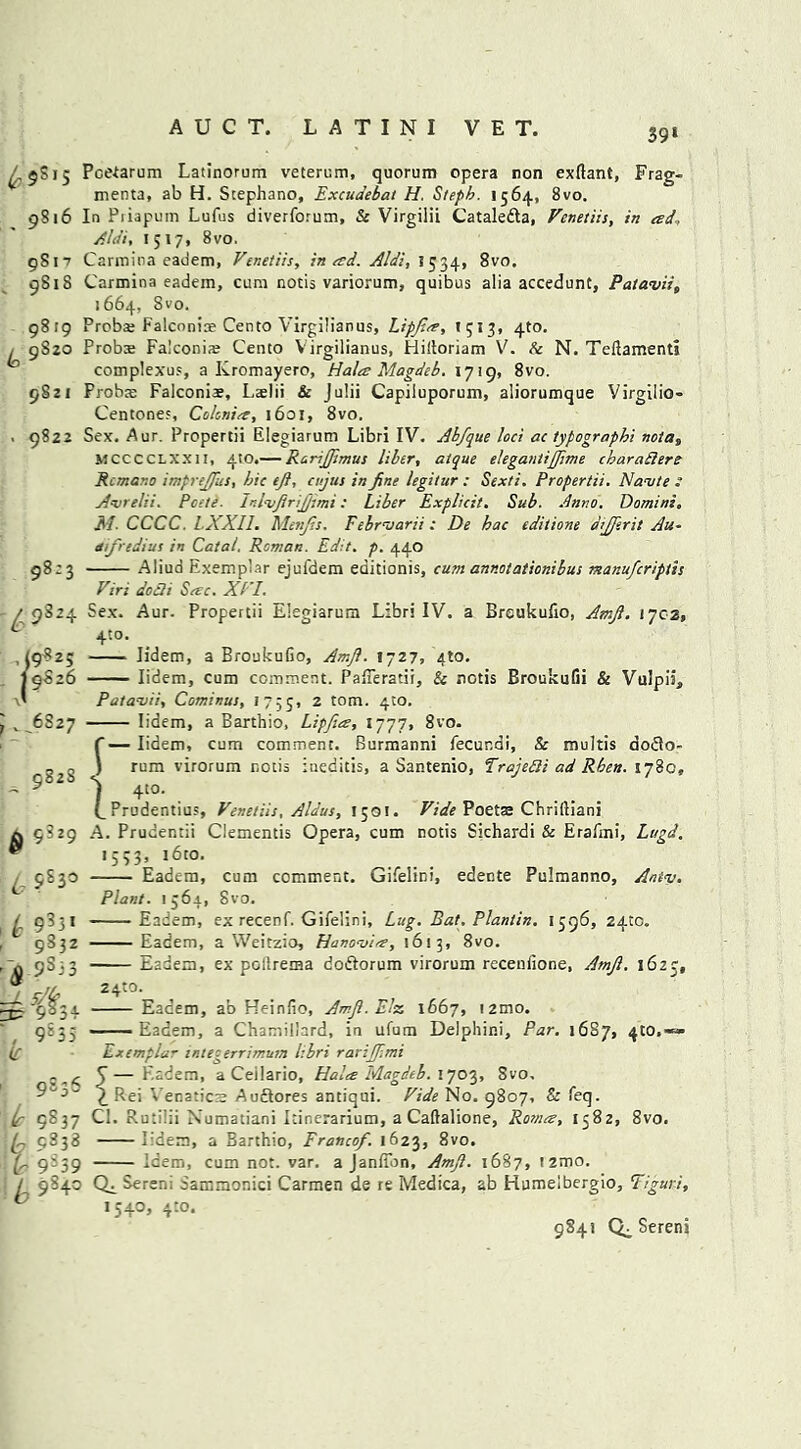 AUCT. LATINI VET.
391
9815 Poetarum Latinorum veterum, quorum opera non exſtant, Frag-
menta, ab H. Stephano, Excudebat H. Steph. 1564, 8vo.
9816 In Priapum Luſus diverſorum, & Virgilii Catalecta, Venetiis, in æd.
Aldi, 1517, 8vo.
9817 Carmina eadem, Venetiis, in æd. Aldi, 1534, 8vo.
9818 Carmina eadem, cum notis variorum, quibus alia accedunt, Patavii,
1664, 8vo.
9819 Probæ Falconiæ Cento Virgilianus, Lipſiæ, 1513, 4to.
9820 Probæ Falconiæ Cento Virgilianus, Hiſtoriam V. & N. Teſtamenti
complexus, a Kromayero, Halæ Magdeb. 1719, 8vo.
9821 Probæ Falconiæ, Lælii & Julii Capiluporum, aliorumque Virgilio-
Centones, Coloniæ, 1601, 8vo.
9822 Sex. Aur. Propertii Elegiarum Libri IV. Abſque loci ac typographi nota,
MCCCCLXXII, 4to.—Rariſſimus liber, atque elegantiſſime charactere
Romano impreſſus, hic eſt, cujus in fine legitur : Sexti. Propertii. Navte :
Avrelii. Poete. Inlvſtriſſimi : Liber Explicit. Sub. Anno. Domini.
M. CCCC. LXXII. Menſis. Febrvarii : De hac editione diſſerit Au-
difredius in Catal. Roman. Edit. p. 440
9823 —— Aliud Exemplar ejuſdem editionis, cum annotationibus manuſcriptis
Viri docti Sæc. XVI.
9824 Sex. Aur. Propertii Elegiarum Libri IV. a Broukuſio, Amſt. 1702,
4to.
9825 —— Iidem, a Broukuſio, Amſt. 1727, 4to.
9826 —— Iidem, cum comment. Paſſeratii, & notis Broukuſii & Vulpii,
Patavii, Cominus, 1755, 2 tom. 4to.
6827 —— Iidem, a Barthio, Lipſiæ, 1777, 8vo.
9828 { — Iidem, cum comment. Burmanni ſecundi, & multis docto-
rum virorum notis ineditis, a Santenio, Trajecti ad Rhen. 1780,
4to.
Prudentius, Venetiis, Aldus, 1501. Vide Poetæ Chriſtiani
9829 A. Prudentii Clementis Opera, cum notis Sichardi & Eraſmi, Lugd.
1553, 16to.
9830 —— Eadem, cum comment. Giſelini, edente Pulmanno, Antv.
Plant. 1564, 8vo.
9831 —— Eadem, ex recenſ. Giſelini, Lug. Bat. Plantin. 1596, 24to.
9832 —— Eadem, a Weitzio, Hanoviæ, 1613, 8vo.
9833 —— Eadem, ex poſtrema doctorum virorum recenſione, Amſt. 1625,
24to.
9834 —— Eadem, ab Heinſio, Amſt. Elz 1667, 12mo.
9835 —— Eadem, a Chamillard, in uſum Delphini, Par. 1687, 4to.—
Exemplar integerrimum libri rariſſimi
9836 { — Eadem, a Cellario, Halæ Magdeb. 1703, 8vo.
Rei Venaticæ Auctores antiqui. Vide No. 9807, & ſeq.
9837 Cl. Rutilii Numatiani Itinerarium, a Caſtalione, Romæ, 1582, 8vo.
9838 —— Idem, a Barthio, Francof. 1623, 8vo.
9839 —— Idem, cum not. var. a Janſſon, Amſt. 1687, 12mo.
9840 Q. Sereni Sammonici Carmen de re Medica, ab Humelbergio, Tiguri,
1540, 4to.
9841 Q. Sereni